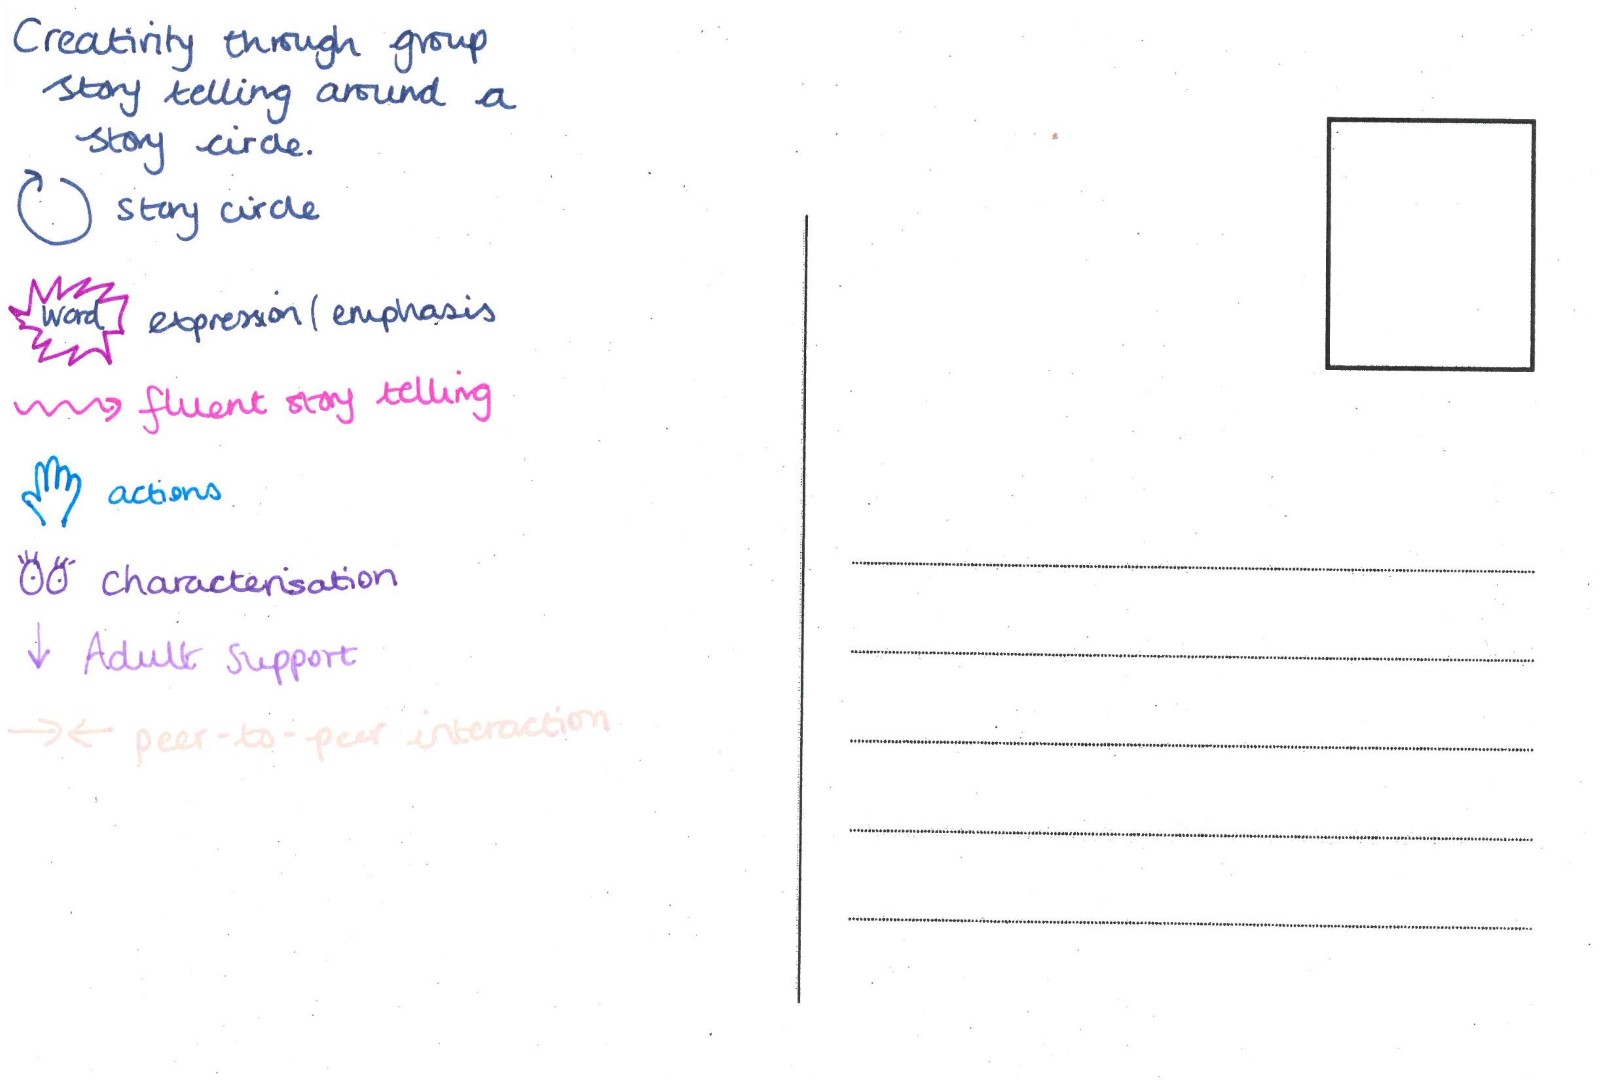 Creativity through group
story telling around a
story circle.
story circle
word expression/emphasis
fluent story telling
actions
characterisation
Adult Support
peer-to-peer interaction